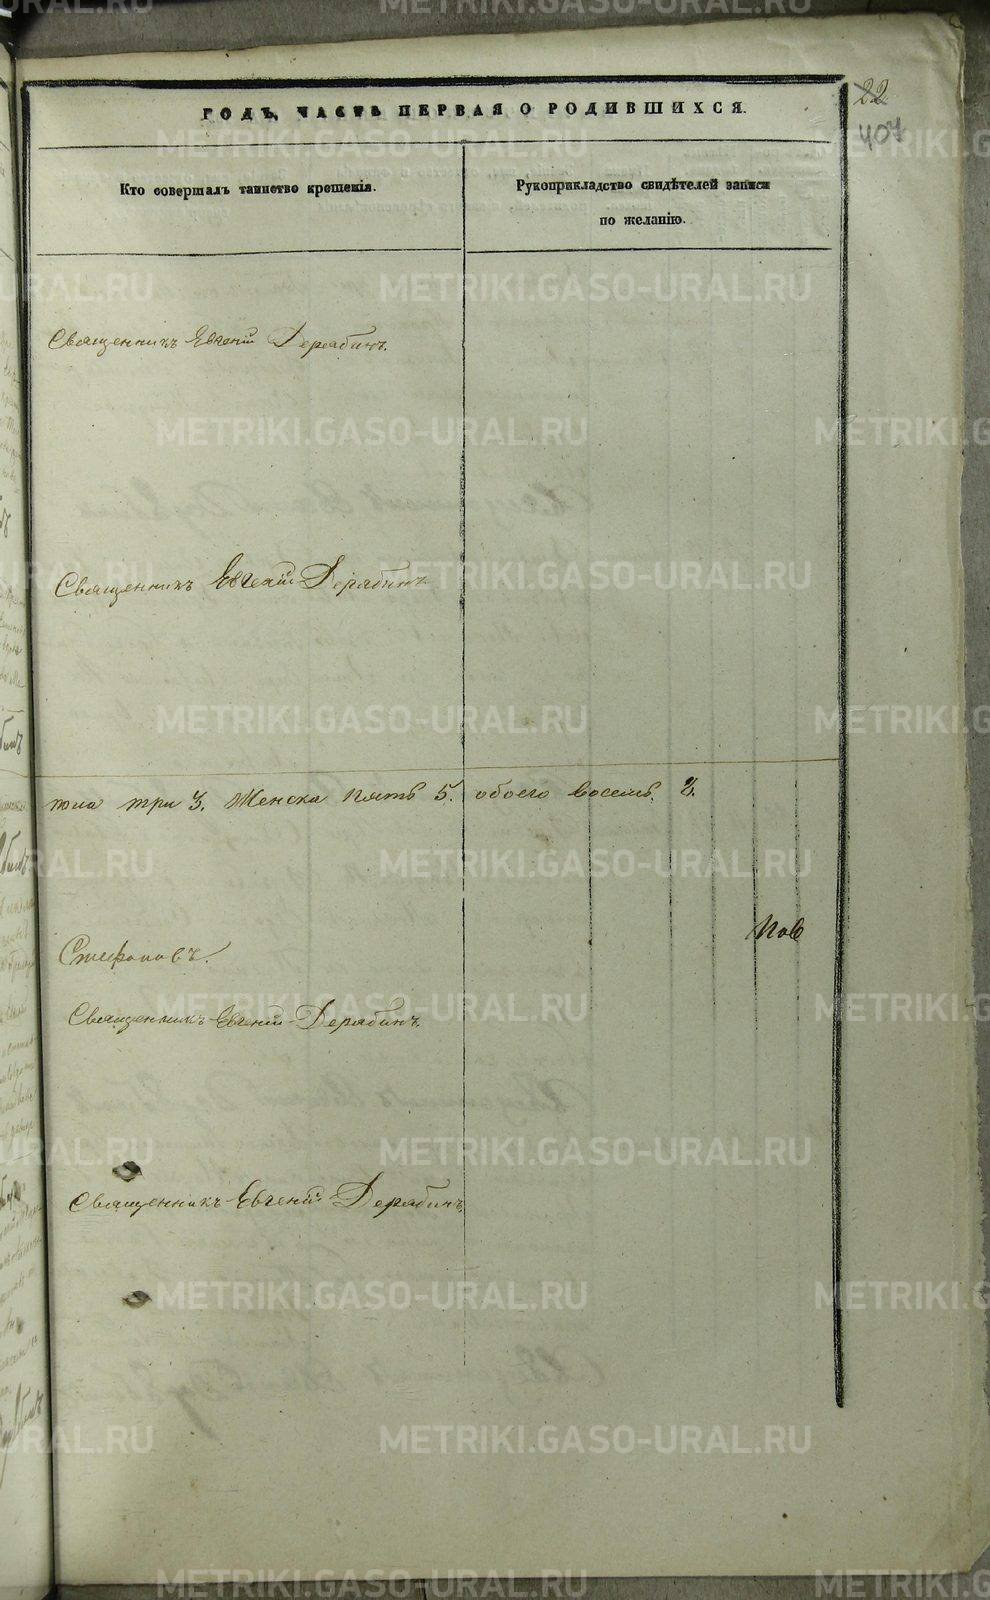 22
407
ГОДЪ, ЧАСТЬ ПЕРВАЯ О РОДИВШИХСЯ.
Кто совершалъ таинство крещенія.
Рукоприкладство свидѣтелей записи
по желанію.
Священникъ Евгеній Дерябинъ.
Священникъ Евгеній Дерябинъ
три 3. Женска пять 5. обоего восемь. 8.
Пов
Священникъ Евгеній Дерябинъ.
Священникъ Евгеній Дерябинъ.
METRIKI.GASO-URAL.RU